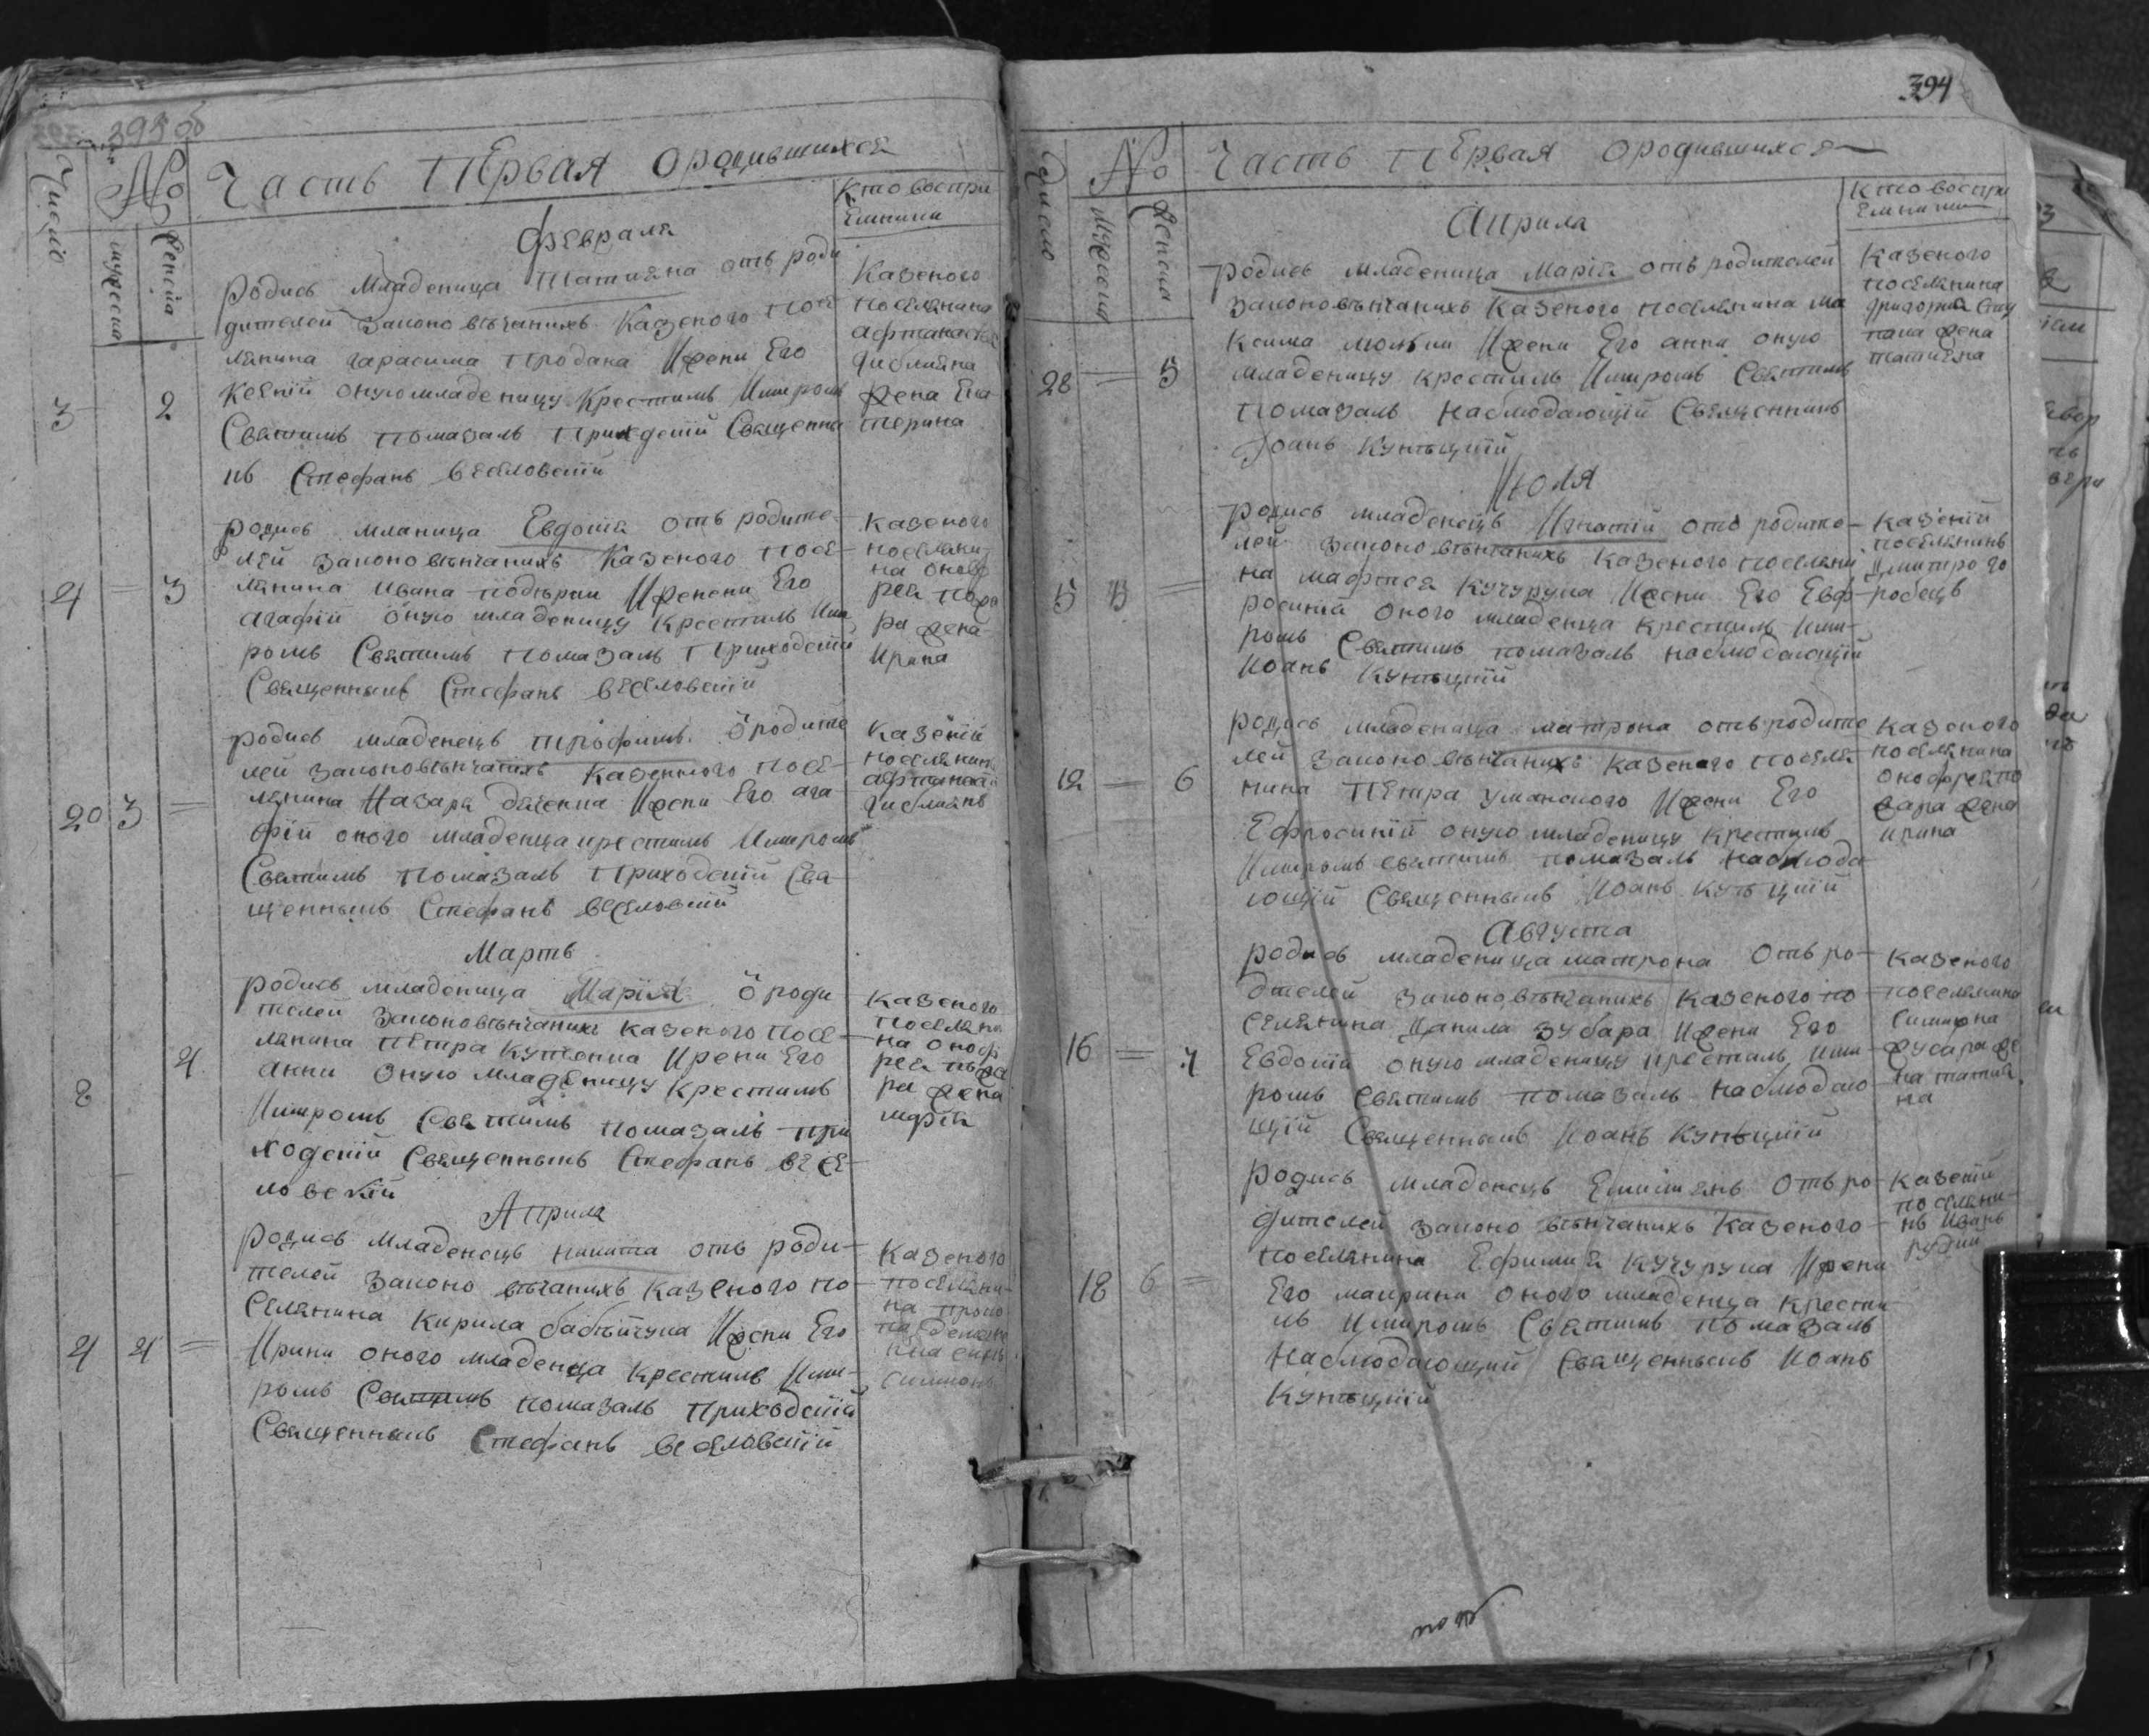 393 об
Число
№
мужеска
женска
Часть Первая ородившихся
Кто воспри
Емники
Февраля
родись Младеница Татияна отъ роди
дителей законо вѣчанихъ Казеного Посе
лянина гарасима Продана Ижени Его
Ксении оную младеницу Крестилъ Имиромъ
Святимъ помазалъ Прихдскій Священни
къ Стефанъ веселовскій
3
2
Казеного
поселянина
афтанасия
жена Ека
терина
родись младница Евдокия отъ родите-
лей законо вѣнчанихъ Казеного Посе-
лянина Ивана подгорни Ижени Его
агафіи оную младеницу Крестилъ Ими
ромъ Святимъ помазалъ Приходскій
Священникъ Стефанъ веселовскій
4 = 3
казеного
поселяни
на оноф
рея
жена
Ирина
родись младенецъ трофимъ ѿ родите
лей законовѣнчанихъ казенного посе-
лянина Назара дяченка Ижени Его ага
фіи оного младенца крестилъ Имиромъ
Святимъ помазалъ Приходскій Свя
щенникъ Стефанъ веселовскій
20 3 =
казеній
поселянинъ
афтанасій
Мартъ
родись младеница Марія ѿ роди
телей законовѣнчанихъ казеного посе-
лянина Петра Куценка Ижени Его
анни оную младеницу Крестилъ
Имиромъ Святимъ помазалъ при
ходскій Священникъ Стефанъ весе-
ловскій
8
4
казеного
поселяни
на оноф
рея
жена
Априля
родись младенецъ никита отъ роди-
телей законо вѣчанихъ казеного по-
селянина Кирила бабѣйчука Ижени Его
Ирини оного младенца крестилъ Ими-
ромъ Святимъ помазалъ Приходскій
Священникъ Стефанъ веселовскій
4 4 =
казеного
поселяни-
на проко
па
синъ
симионъ
394
Число
№
Мужеска
женска
Часть Первая ородившихся
Кто воспри
Емники
Априля
родись младеница Марія отъ родителей
законовѣнчанихъ Казеного поселянина ма
ксима люльки Ижени Его анни оную
младеницу крестилъ Имиромъ Святимъ
помазалъ наблюдающій Священникъ
Іоанъ Кунѣцкій
28 = 5
казеного
поселянина
григория
жена
татияна
Июля
родись младенецъ Игнатій отъ родите-
лей законо вѣнчанихъ казеного поселяни
на мафтея Кучурука Ижени Его Евф-
росиніи оного младенца крестилъ Ими-
ромъ Святимъ помазалъ наблюдающій
Иоанъ Кунѣцкій
5 5 =
казеній
поселянинъ
дмитро го
робецъ
родись младеница матрона отъ родите
лей законо вѣнчанихъ казеного поселя
нина Петра уманского Ижени Его
Ефросиніи оную младеницу крестилъ
Имиромъ святимъ помазалъ наблюда
ющій Священникъ Иоанъ Кунѣцкій
12 — 6
казеного
поселянина
онофрея
жена
ирина
Августа
родись младеница матрона отъ ро-
дителей законо вѣнчанихъ казеного по-
селянина Данила зубара Ижени Его
Евдокіи оную младеницу крестилъ Ими
ромъ Святимъ помазалъ наблюдаю
щій Священникъ Иоанъ Кунѣцкій
16 = 7
казеного
поселянина
Симиона
же
на татия
на
родись младенецъ Емилиянъ отъ ро
дителей законо вѣнчанихъ Казеного
поселянина Ефимия кучурука Ижени
Его маврини оного младенца крести
лъ Имиромъ Святимъ помазалъ
Наблюдающій Священникъ Иоанъ
Кунѣцкій
18 6 =
казеній
поселяни-
нъ Иванъ